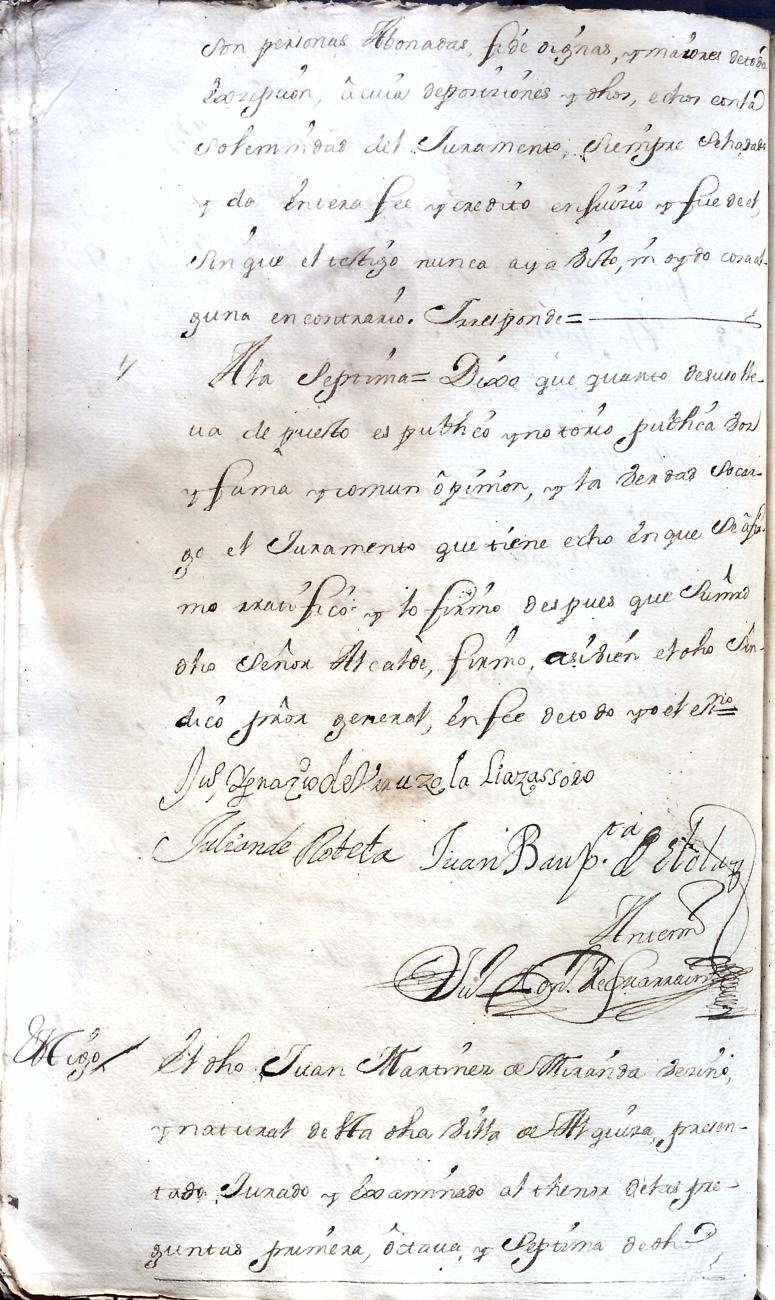 son personas Abonadas, fidedignas, y maiores detoda
Exzepcion, â cuia deposiziones y dhos, echos conla
Solemnidad del Juramento, Siempre Sehadado
y da êntera fee y credito enjuizio y fuedeel,
Sin que el testigo nunca aya visto, ni oydo cosa al-
guna encontrario. Y responde=
7 Ala Septima= Dixo que quanto desuso lle-
va de puesto es publico y notorio publica voz
y fama y comun ôpinion, y la verdad Socar-
go el Juramento que tiene echo ênque Se âfir-
mo rratificó: y lo firmo despues que Sumrd
dho Señor Alcalde, firmo, asibien el dho Sin-
dico prôr general, ên fee detodo yo el essno=
Jul Ygnazio de Veruzela Liazasoro
Julian de Roteta Juan Baupta de Elola
Antemi
Testigo/ El dho Juan Martinez de Miranda vezino,
y natural de lla dha villa de Alquiza, presen-
tado Jurado y Examinado al thenor delas pre-
guntas primera, ôctava, y Septima dedho